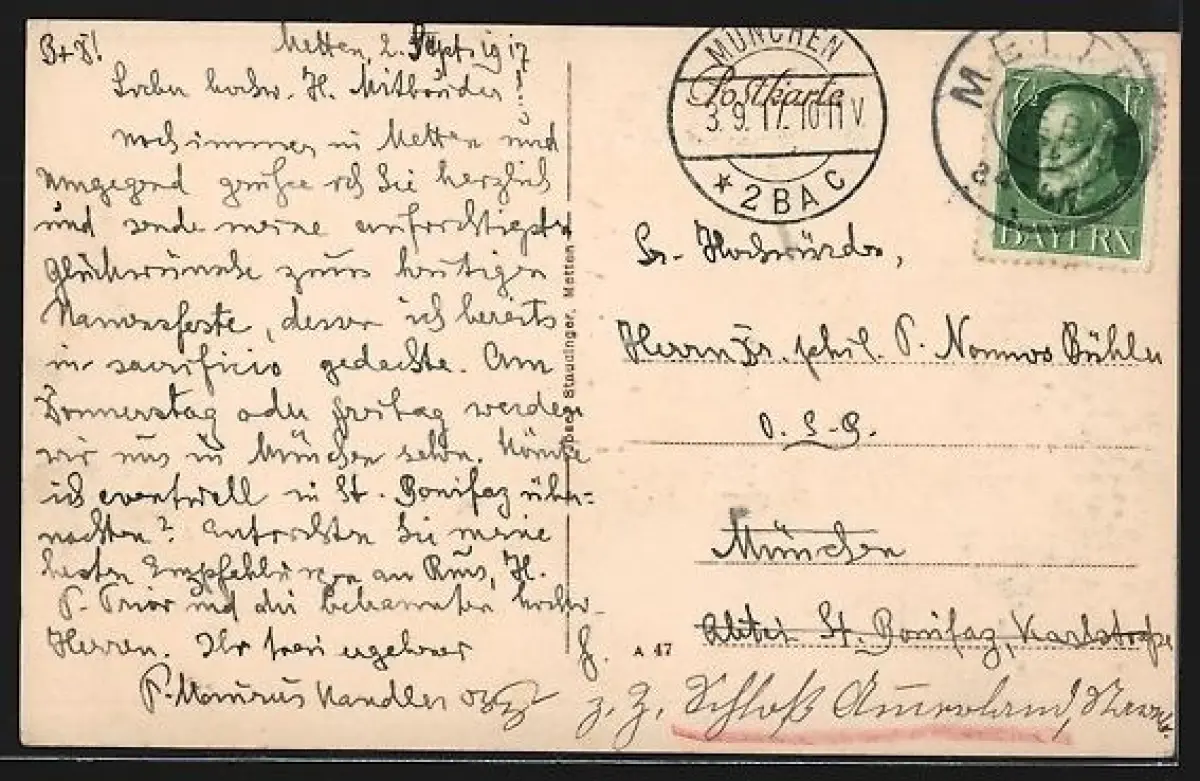 Metten, 2. Sept. 1917
Lieber hochw. H. Mitbruder!
Noch immer in Metten und
Umgegend grüsse ich Sie herzlich
und sende meine aufrichtigsten
Glückwünsche zum heutigen
Namensfeste, dessen ich bereits
in sacrificio gedachte. Am
Donnerstag oder Freitag werden
wir uns in München sehen. Könnte
ich eventuell in St. Bonifaz über=
nachten? Entrichten Sie meine
besten Empfehlungen an Rms, H.
P. Prior und die bekannten hochw.
Herren. Ihr treu ergebener
P. Maurus Kandler OSB
Staudinger, Metten
MÜNCHEN
Postkarte
3.9.17.10-11V.
* 2BAC
METTEN
7½
BAYERN
Sr. Hochwürden,
Herrn Dr. phil. P. Nonnos Bühler
O.S.B.
München
Abtei St. Bonifaz, Karlstrasse
A 47
z. Z. Schloß